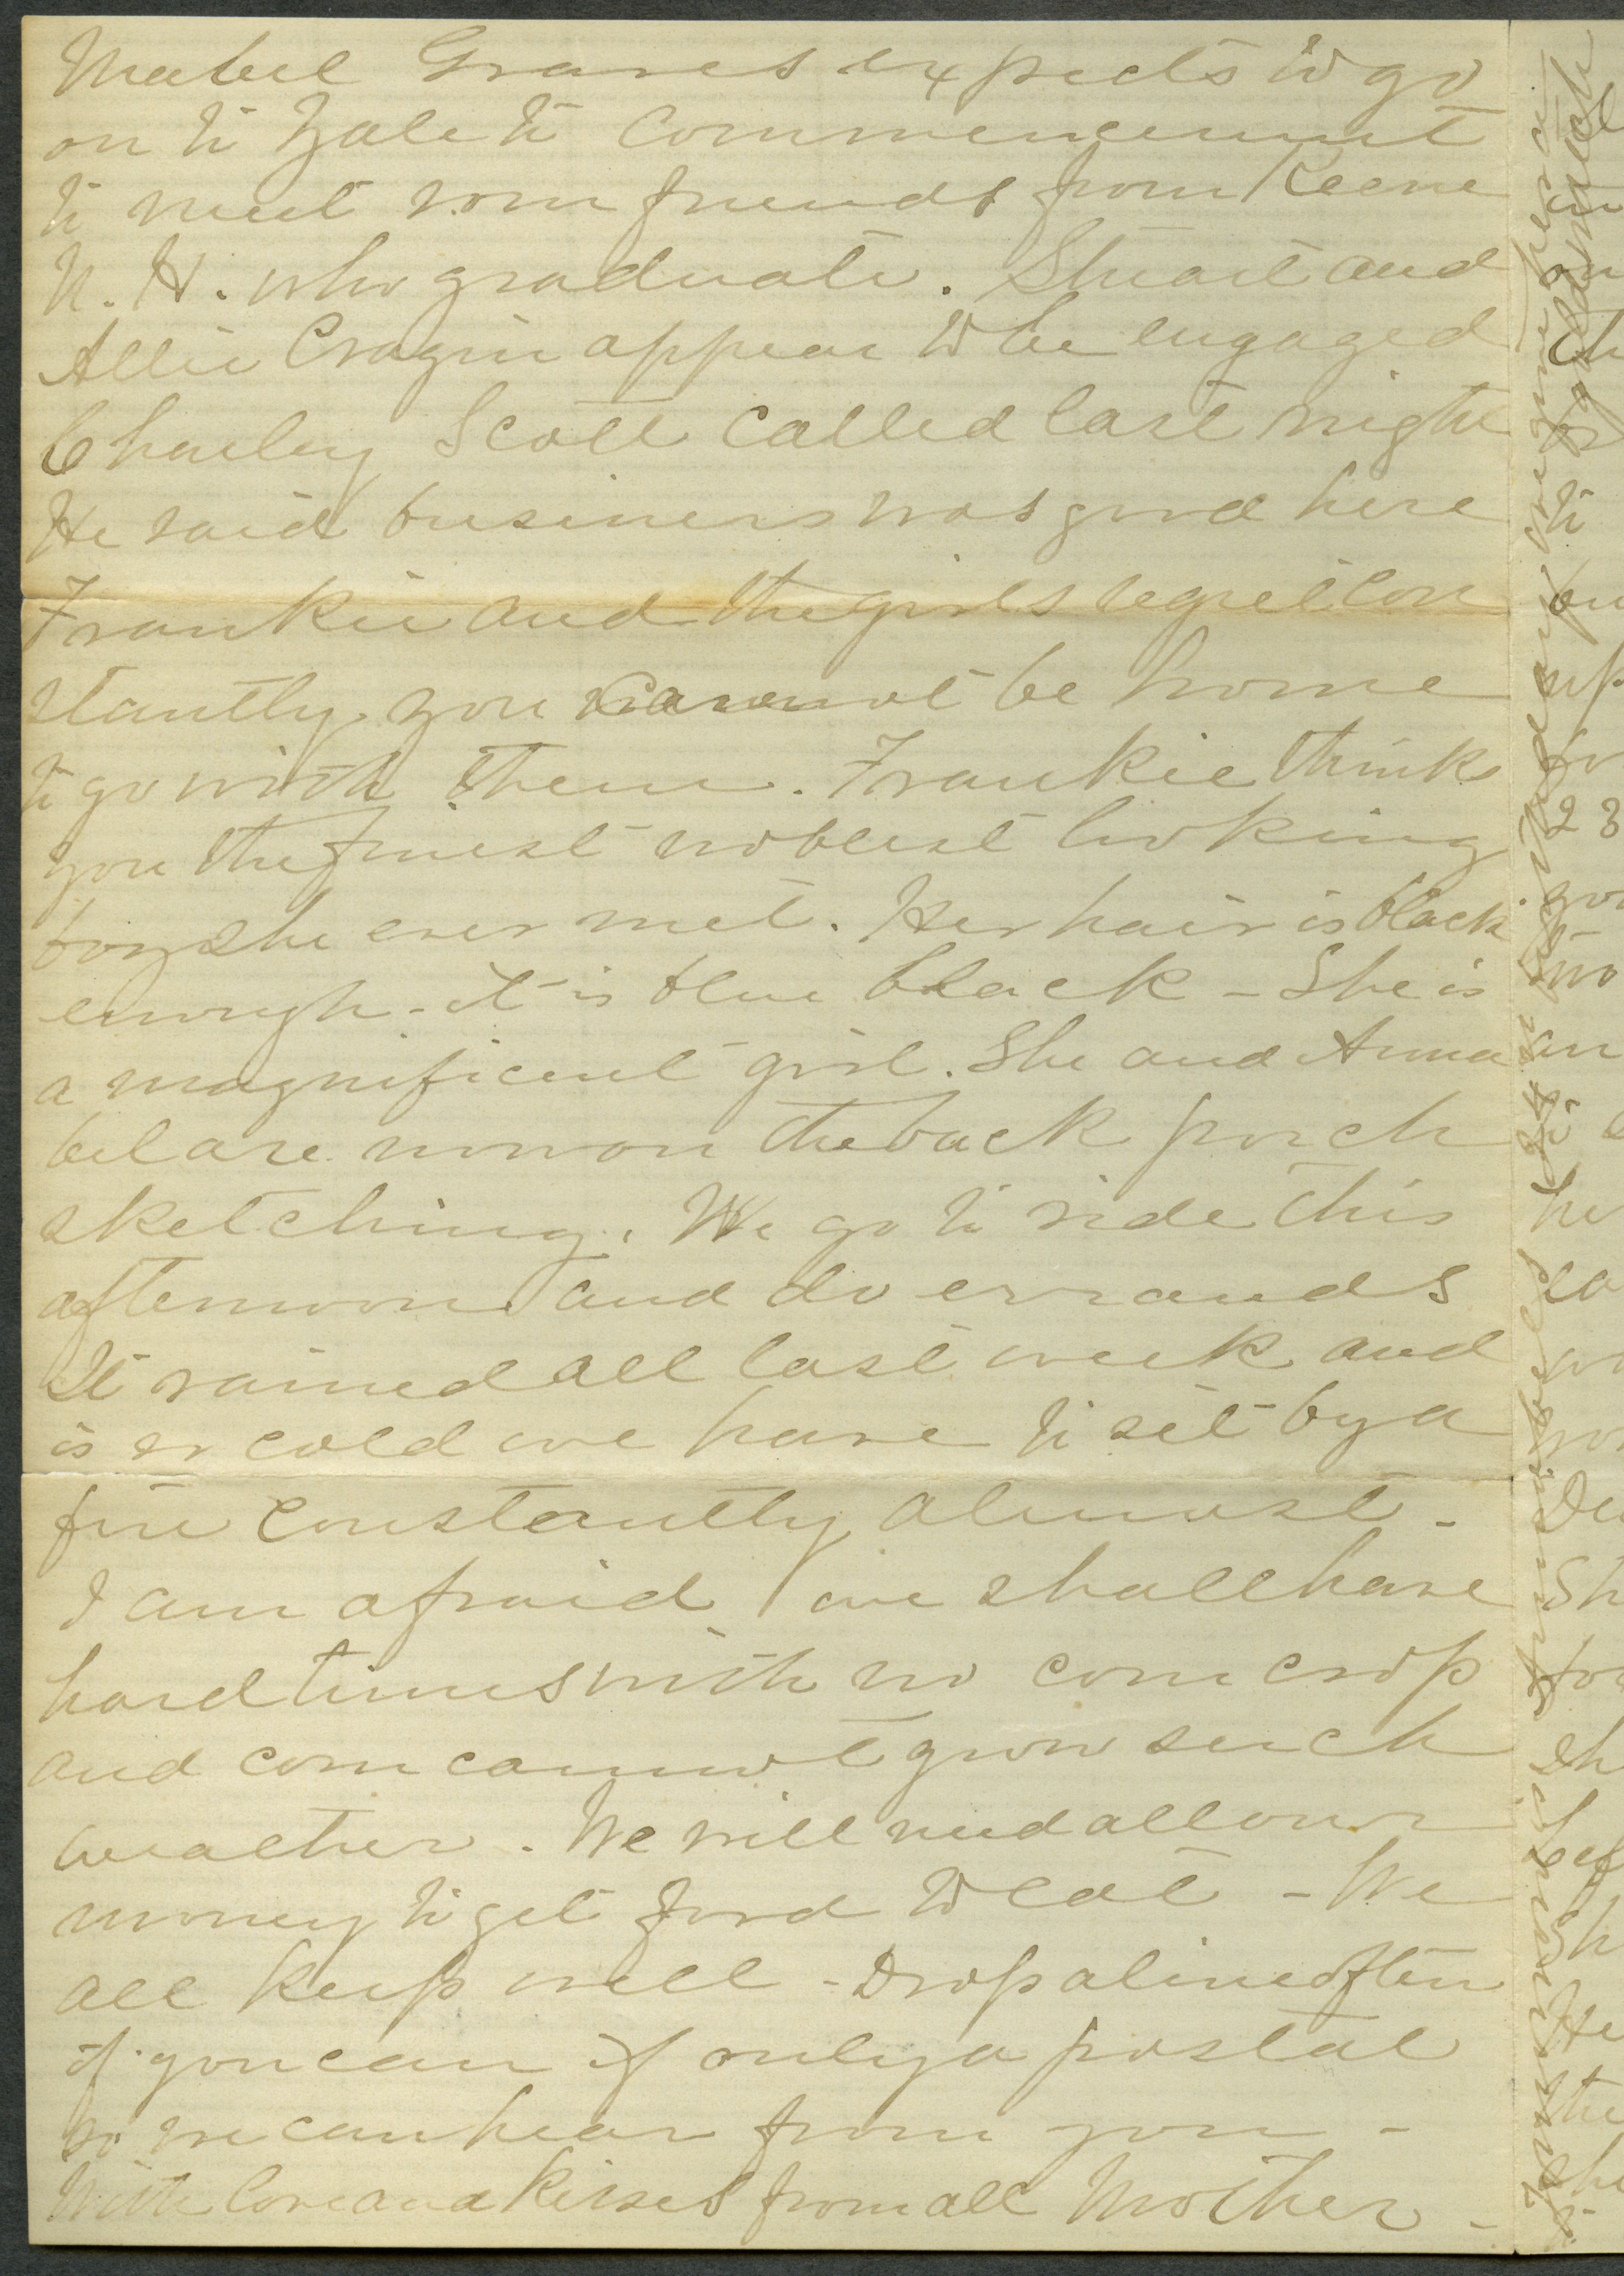 Mabel Graves expects to go
on to Yale to Commencement
to meet some friends from Keene
N. H. who graduate. Stuart and
Allie Cragin appear to be engaged
Charley Scott called last night
He said business was good here
Frankie and the girls regret con
stantly you cannot be home
to go with them. Frankie think
you the finest noblest looking
boy she ever met. Her hair is black
enough - it is blue black - She is
a magnificent girl. She and Anna
bel are now on the back porch
sketching. We go to ride this
afternoon and do errands
It rained all last week and
is so cold we have to sit by a
fire constantly almost -
I am afraid we shall have
hard times with no corn crop
and corn cannot grow such
weather. We will need all our
money to get food to eat - We
all keep well - Drop a line often
if you can if only a postal
so we can hear from you -
With love and kisses from all Mother -